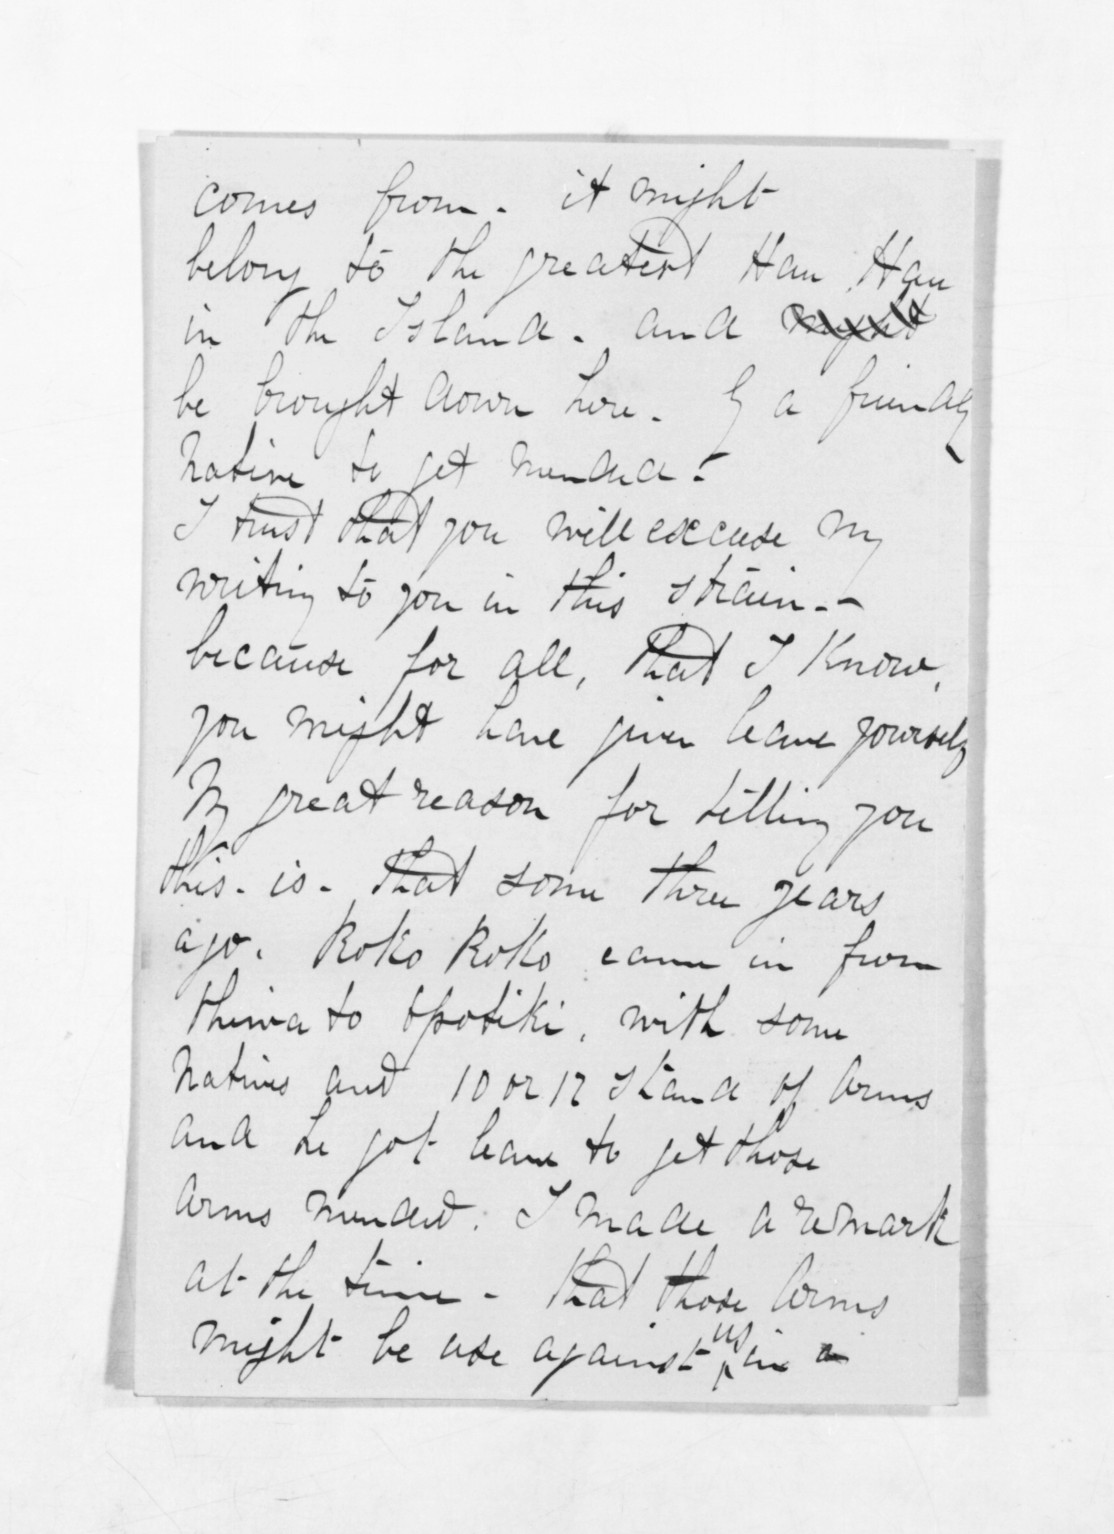 comes from. it might
belong to the greatest Hau Hau
in the Island. and might
be brought down here. by a friendly
Native to get mended.
I trust that you will exccuse my
writing to you in this strain. -
because for all, that I Know,
you might have given leave yourself
My great reason for telling you
this. is. that some three years
ago. Koko Koko came in from
to Opotiki, with some
Natives and 10 or 12 stand of Arms
and he got leave to get those
Arms mended. I made a remark
at the time - that those Arms
might be use against us in a